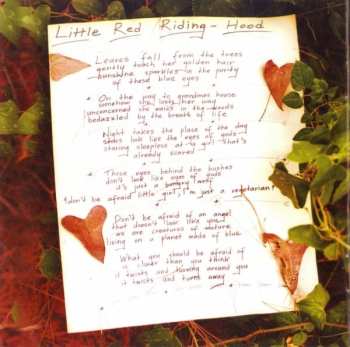 Little Red Riding-Hood
Leaves fall from the trees
gently touch her golden hair
sunshine sparkles in the purity
of these blue eyes
On the way to grandmas house
somehow she lost her way
unconcerned she walks in the woods
bedazzled by the breath of life
Night takes the place of the day
stars look like the eyes of gods
staring sleepless at a girl that's
already scared
Those eyes behind the bushes
don't look like eyes of gods
it's just a hungry wolf
"don't be afraid little girl, I'm just a vegetarian"
Don't be afraid of an angel
that doesn't look like you
we are creatures of nature
living on a planet made of blue
What you should be afraid of
is closer than you think
it twists and turns around you
it twists and turns away